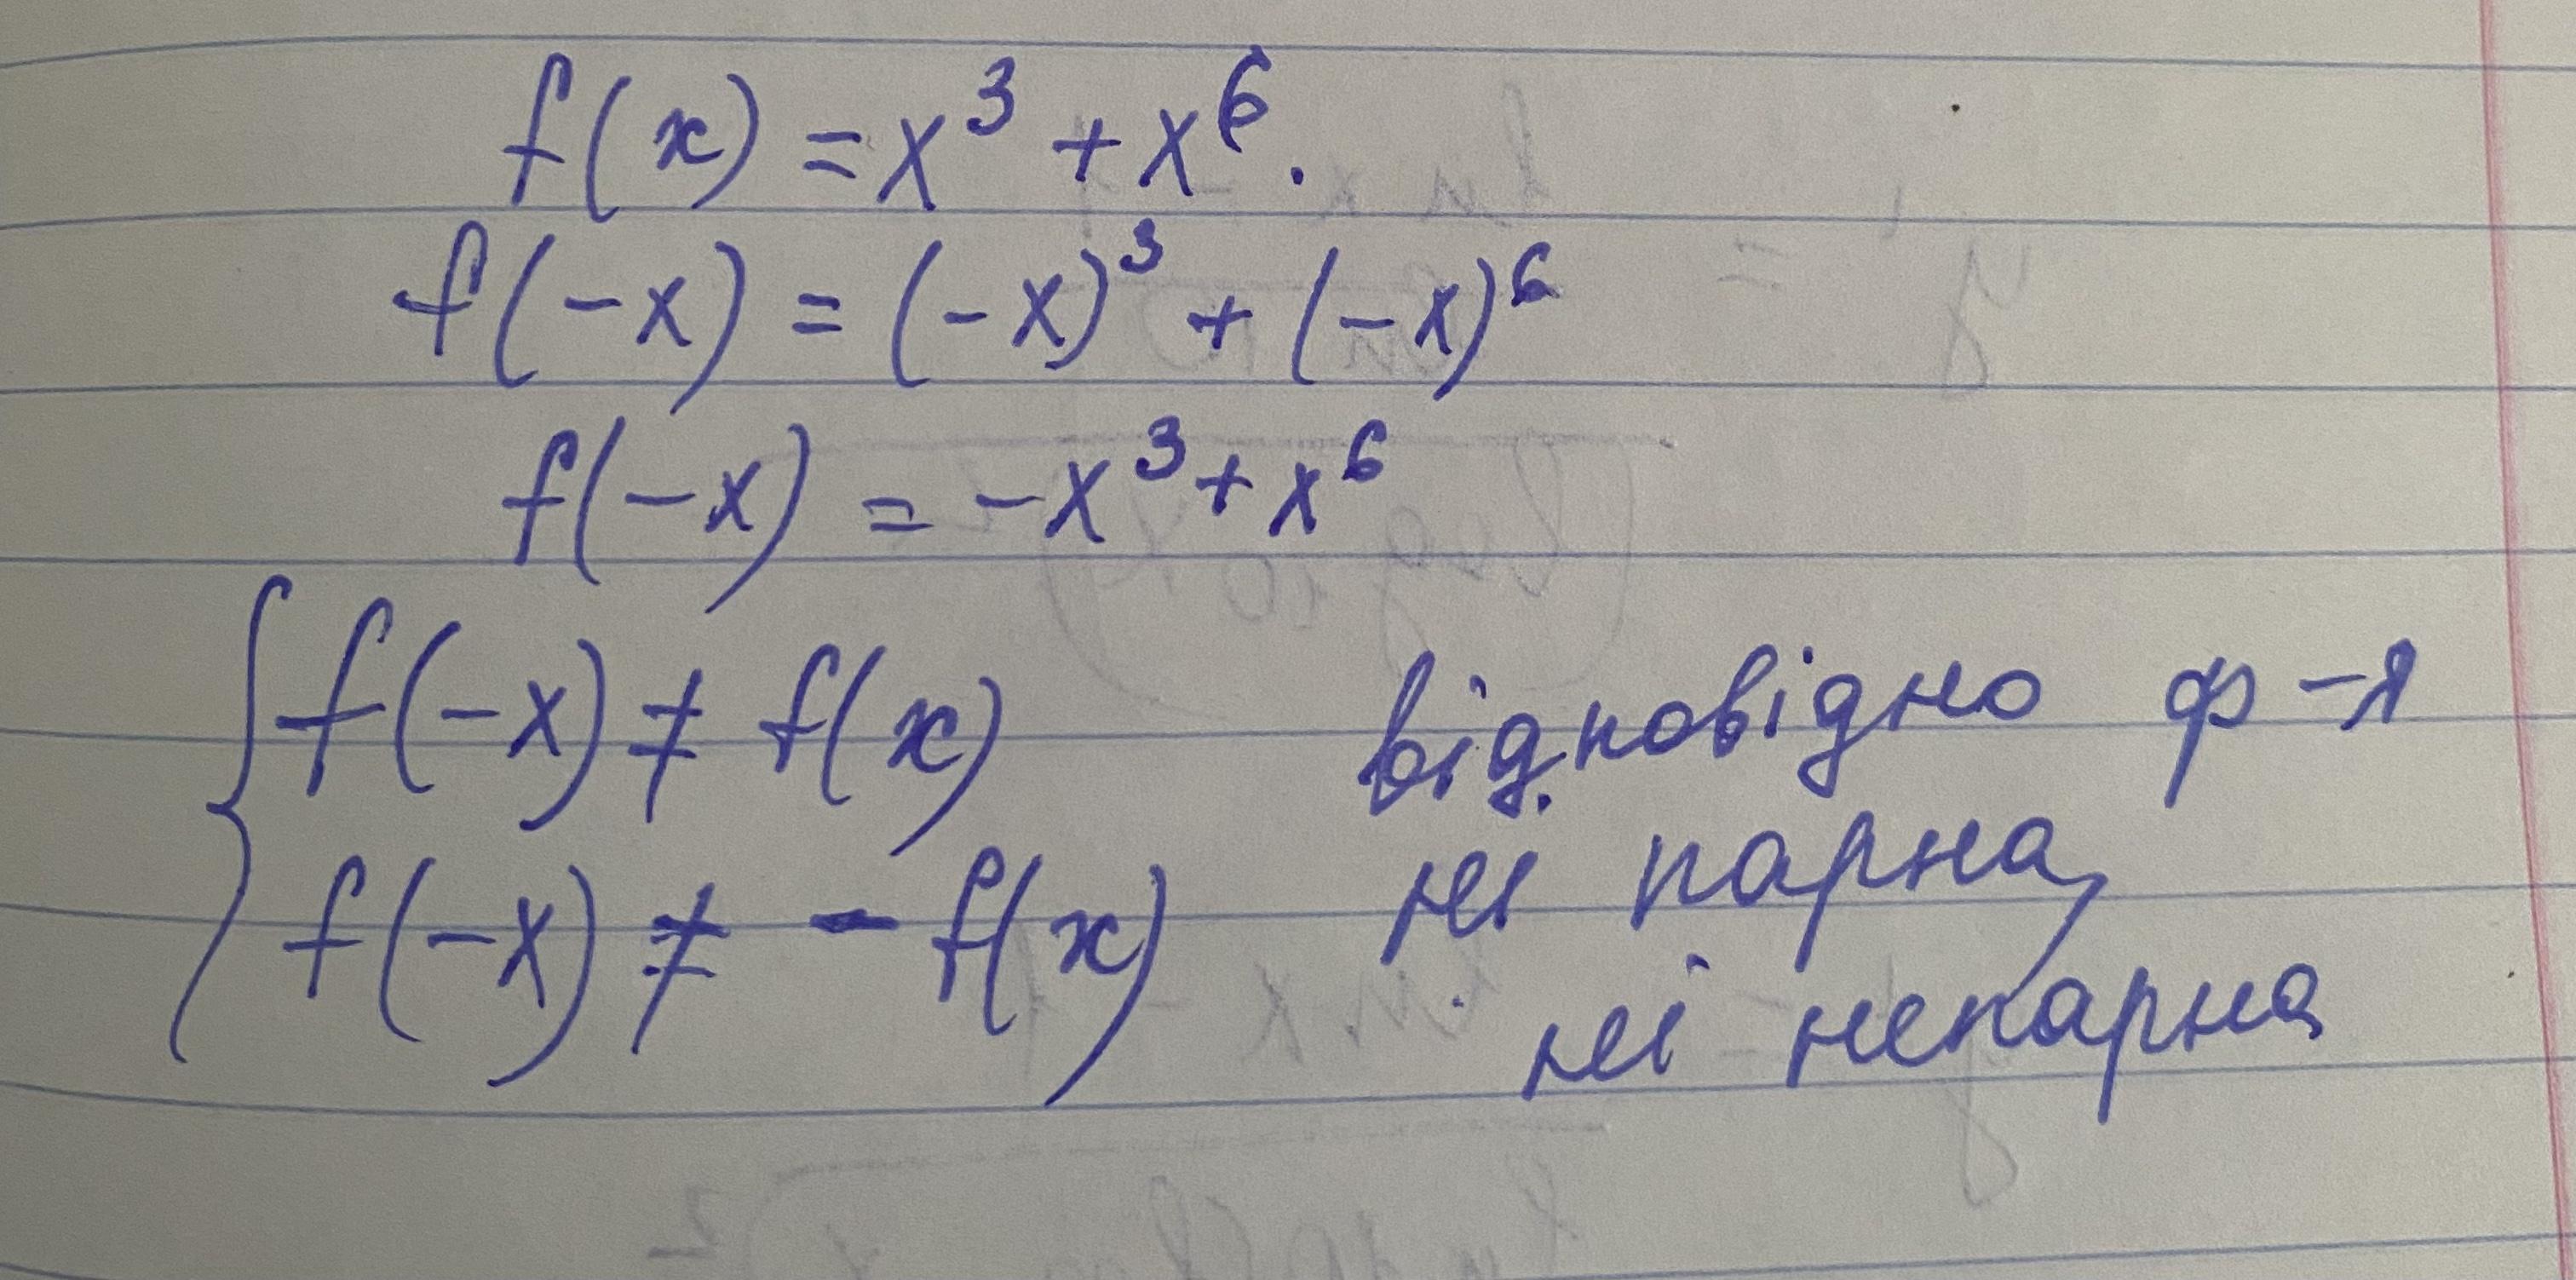 f(x) = x³ + x⁶.
f(-x) = (-x)³ + (-x)⁶
f(-x) = -x³ + x⁶
f(-x) ≠ f(x) відповідно ф-я
ні парна,
f(-x) ≠ - f(x)
ні непарна